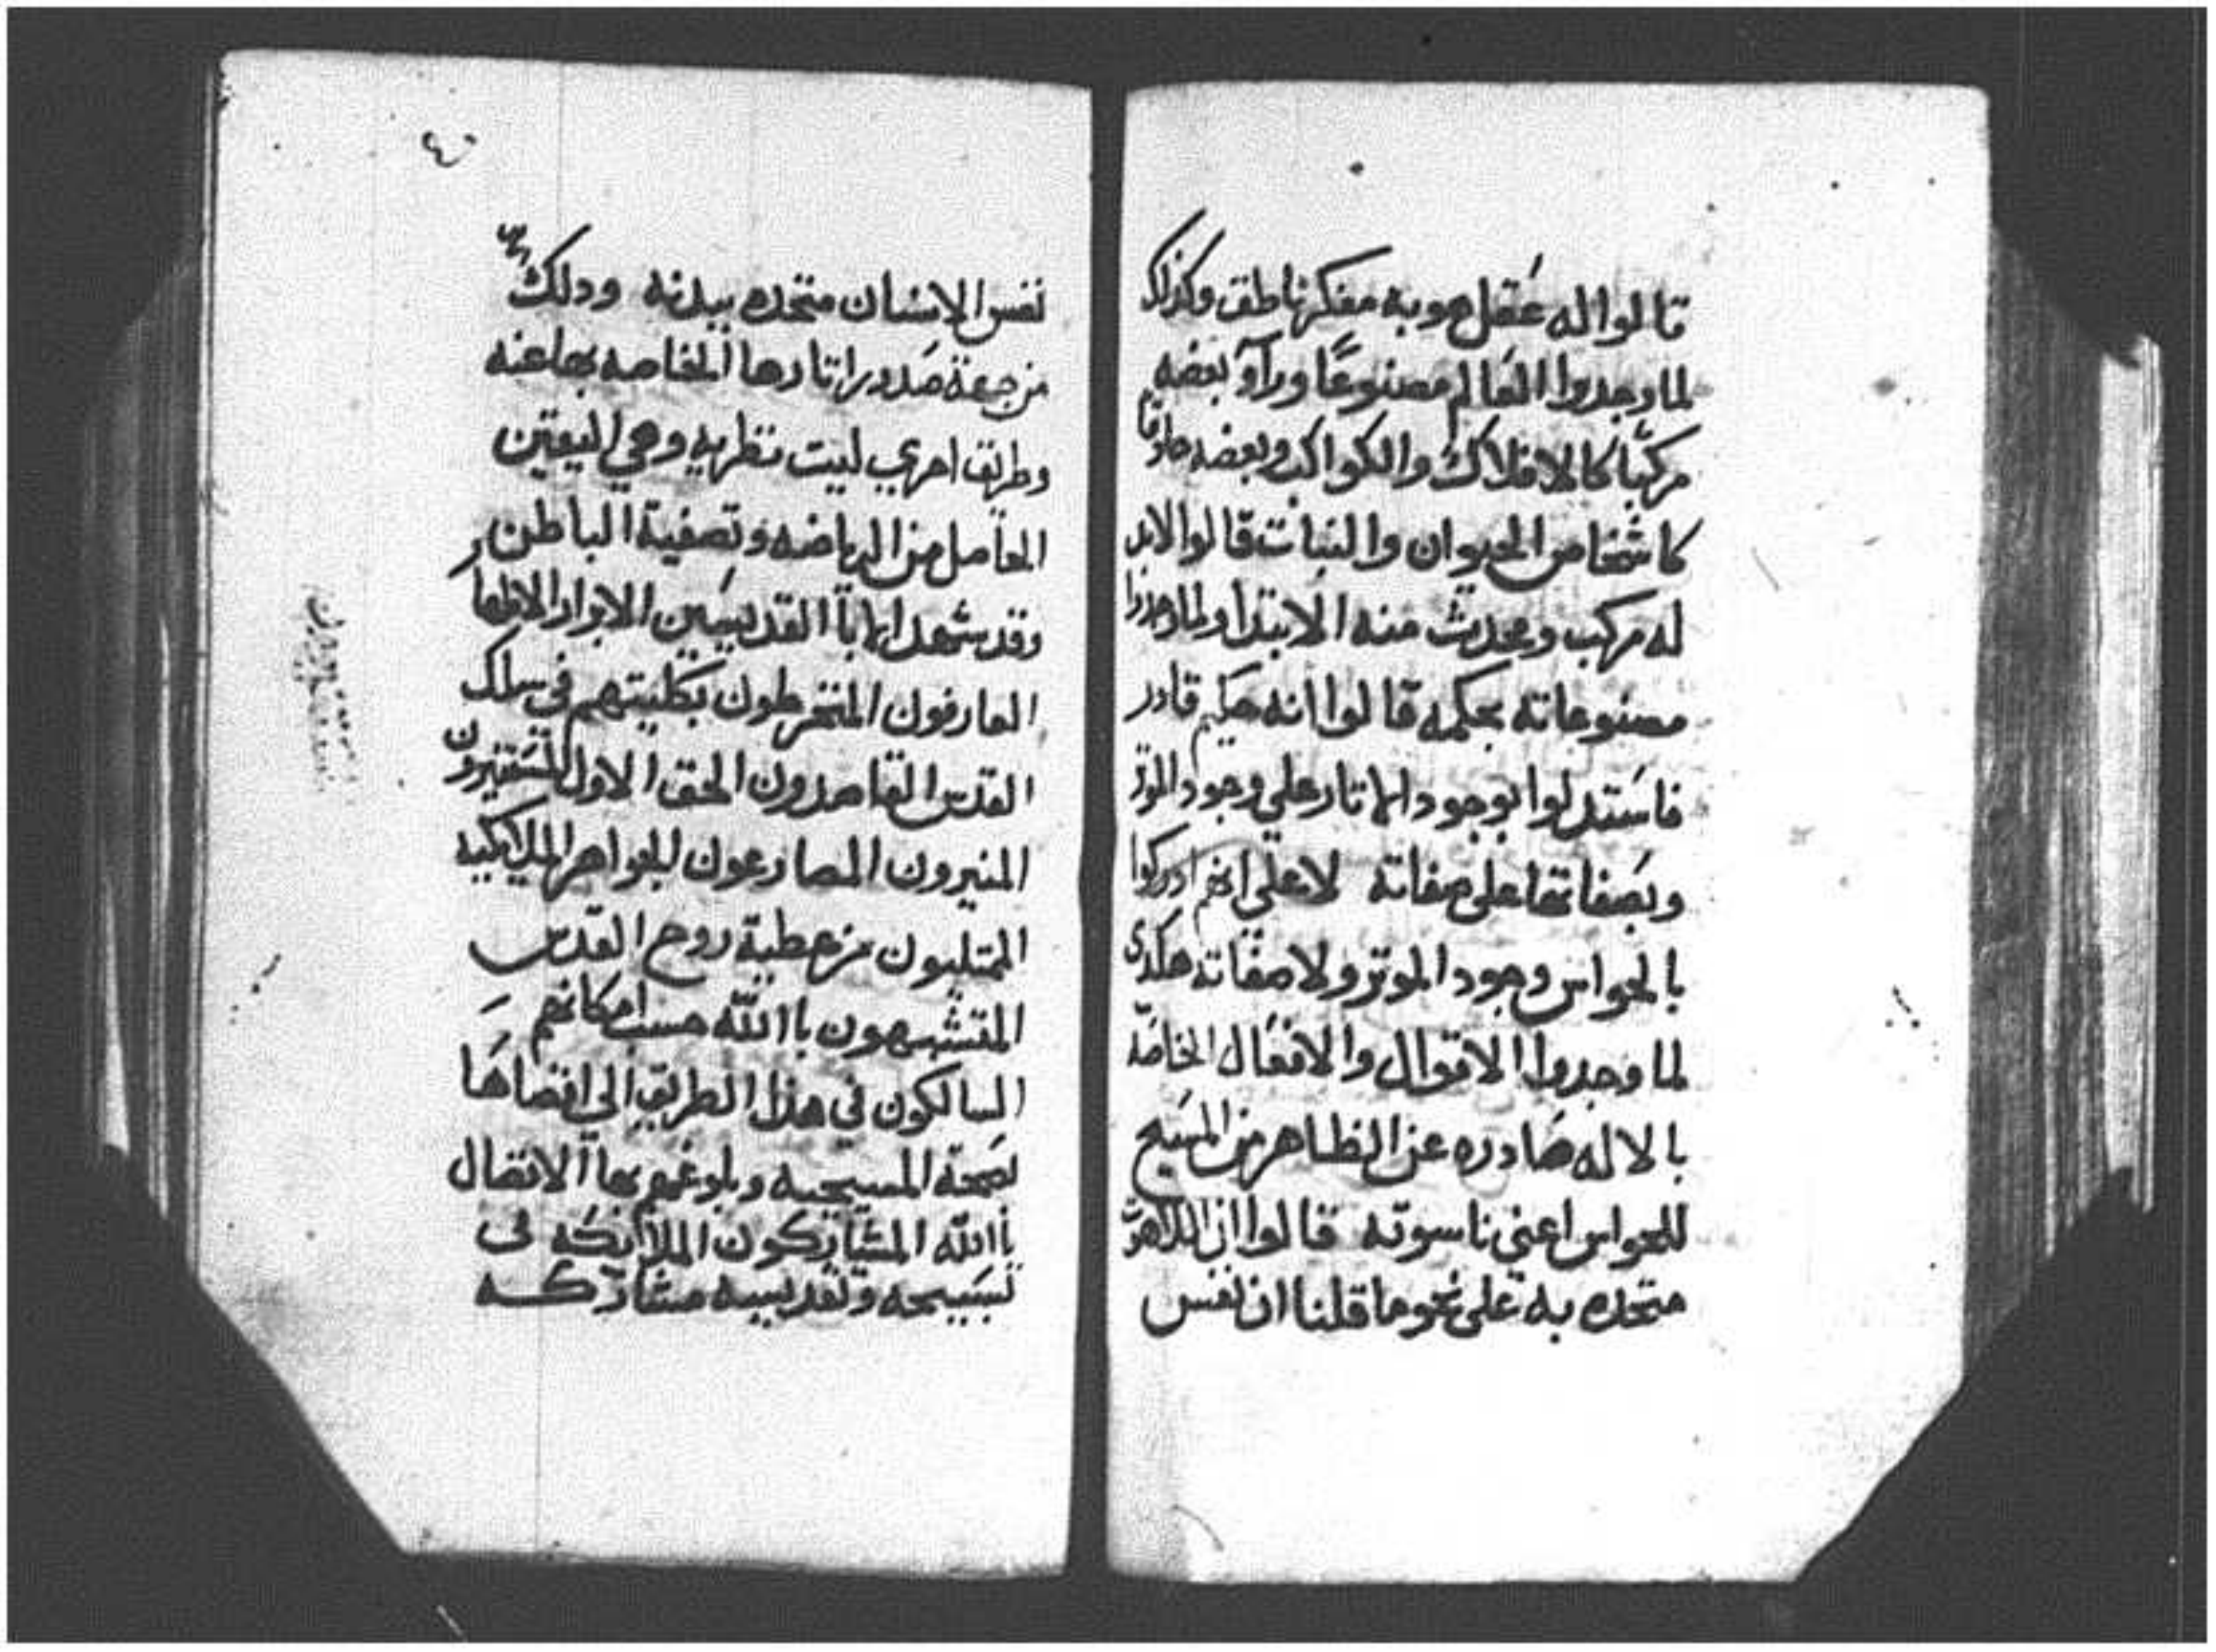 قالوا له عقل هو به مفكر ناطق وكذلك
لما وجدوا العالم مصنوعًا وراوا بعضه
مركبًا كالافلاك والكواكب وبعضه
كاشخاص الحيوان والنبات قالوا لابد
له مركب ومحدث منه الابتدا ولما وجدوا
مصنوعاته بحكمه قالوا انه حكيم قادر
فاستدلوا بوجود الاتار علي وجود الموتر
وبصفاتها علي صفاته لا علي انهم ادركوا
بالحواس وجود الموتر ولا صفاته هكدى
لما وجدوا الاقوال والافعال الخاصّة
بالاله صادره عن الظاهر من المسيح
للحواس اعني ناسوته قالوا ان اللاهوت
متحده به علي نحو ما قلنا ان نفس
٤
نفس الانسان متحده ببدنه ودلك
من جهة صدور اتارها الخاصه بها عنه
وطريق اخري ليست نظريه وهي اليقين
الحاصل من الرياضه وتصفية الباطن
وقد شهد الابآ القديسين الابرار الاطهار
العارفون المنخرطون بكليتهم في سلك
القدس القاصدون الحق الاول المستنيرون
المنيرون المضارعون للجواهر الملايكيه
الممتليون من عطية روح القدس
المتشبهون باالله حسب امكانهم
السالكون في هذا الطريق الي اقصاها
لصحة المسيحيه وبلوغهم بها الاتصال
باالله المشاركون الملايكه في
تسبيحه وتقديسه مشاركه